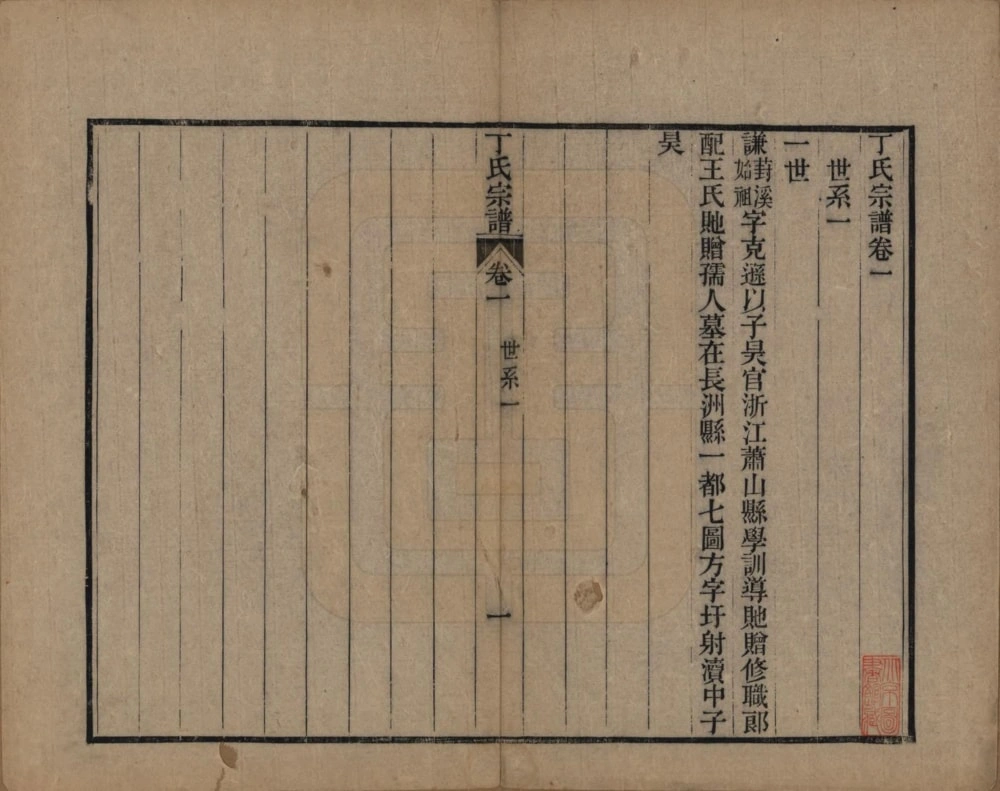 丁氏宗譜卷一
世系一
一世
謙封溪始祖字克遜以子昊官浙江蕭山縣學訓導貤贈修職郎
配王氏貤贈孺人墓在長洲縣一都七圖方字圩射瀆中子
昊
丁氏宗譜 卷一 世系一 一